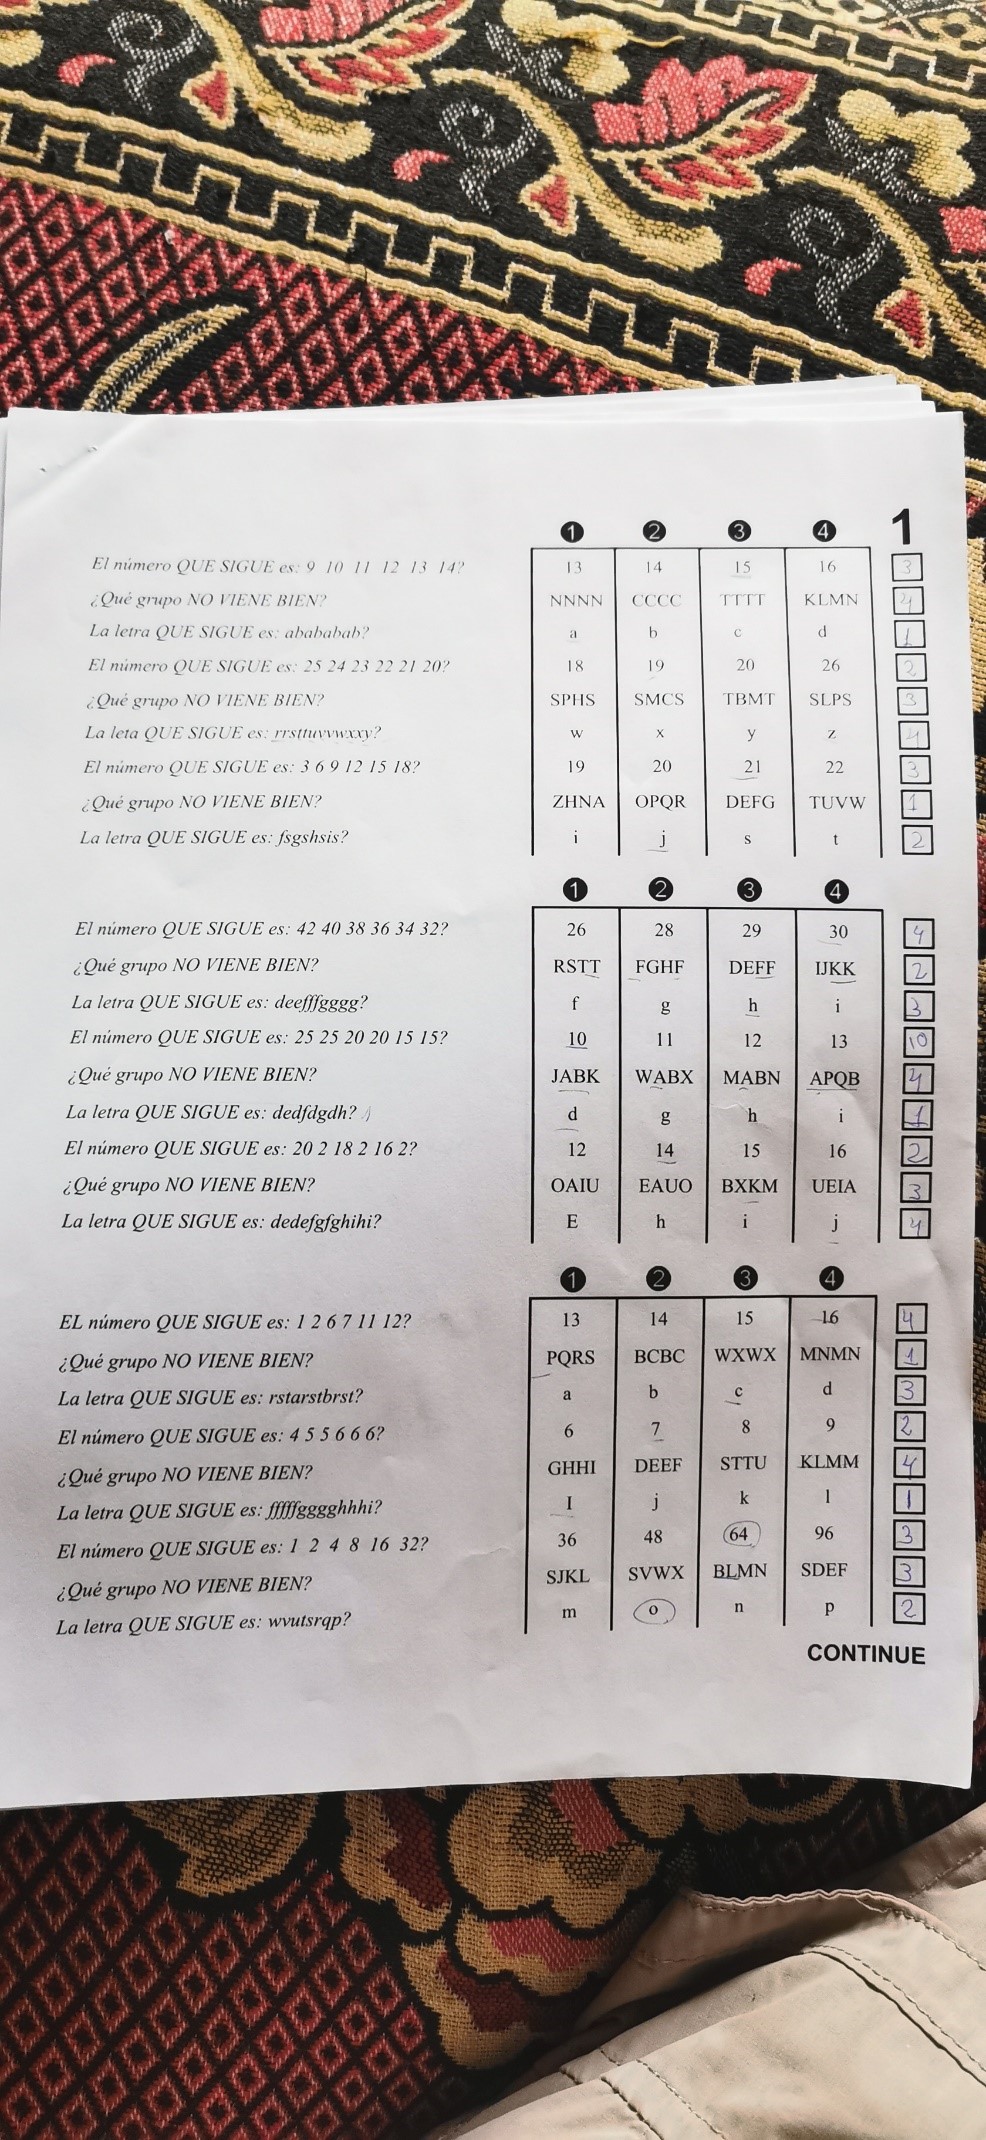 1 2 3 4 1
El número QUE SIGUE es: 9 10 11 12 13 14? 13 14 15 16 3
¿Qué grupo NO VIENE BIEN? NNNN CCCC TTTT KLMN 4
La letra QUE SIGUE es: abababab? a b c d 1
El número QUE SIGUE es: 25 24 23 22 21 20? 18 19 20 26 2
¿Qué grupo NO VIENE BIEN? SPHS SMCS TBMT SLPS 3
La leta QUE SIGUE es: rrsttuvvwxxy? w x y z 4
El número QUE SIGUE es: 3 6 9 12 15 18? 19 20 21 22 3
¿Qué grupo NO VIENE BIEN? ZHNA OPQR DEFG TUVW 1
La letra QUE SIGUE es: fsgshsis? i j s t 2
1 2 3 4
El número QUE SIGUE es: 42 40 38 36 34 32? 26 28 29 30 4
¿Qué grupo NO VIENE BIEN? RSTT FGHF DEFF IJKK 2
La letra QUE SIGUE es: deefffgggg? f g h i 3
El número QUE SIGUE es: 25 25 20 20 15 15? 10 11 12 13 10
¿Qué grupo NO VIENE BIEN? JABK WABX MABN APQB 4
La letra QUE SIGUE es: dedfdgdh? d g h i 1
El número QUE SIGUE es: 20 2 18 2 16 2? 12 14 15 16 2
¿Qué grupo NO VIENE BIEN? OAIU EAUO BXKM UEIA 3
La letra QUE SIGUE es: dedefgfghihi? E h i j 4
1 2 3 4
EL número QUE SIGUE es: 1 2 6 7 11 12? 13 14 15 16 4
¿Qué grupo NO VIENE BIEN? PQRS BCBC WXWX MNMN 1
La letra QUE SIGUE es: rstarstbrst? a b c d 3
El número QUE SIGUE es: 4 5 5 6 6 6? 6 7 8 9 2
¿Qué grupo NO VIENE BIEN? GHHI DEEF STTU KLMM 4
La letra QUE SIGUE es: fffffgggghhhi? I j k l 1
El número QUE SIGUE es: 1 2 4 8 16 32? 36 48 64 96 3
¿Qué grupo NO VIENE BIEN? SJKL SVWX BLMN SDEF 3
La letra QUE SIGUE es: wvutsrqp? m o n p 2
CONTINUE